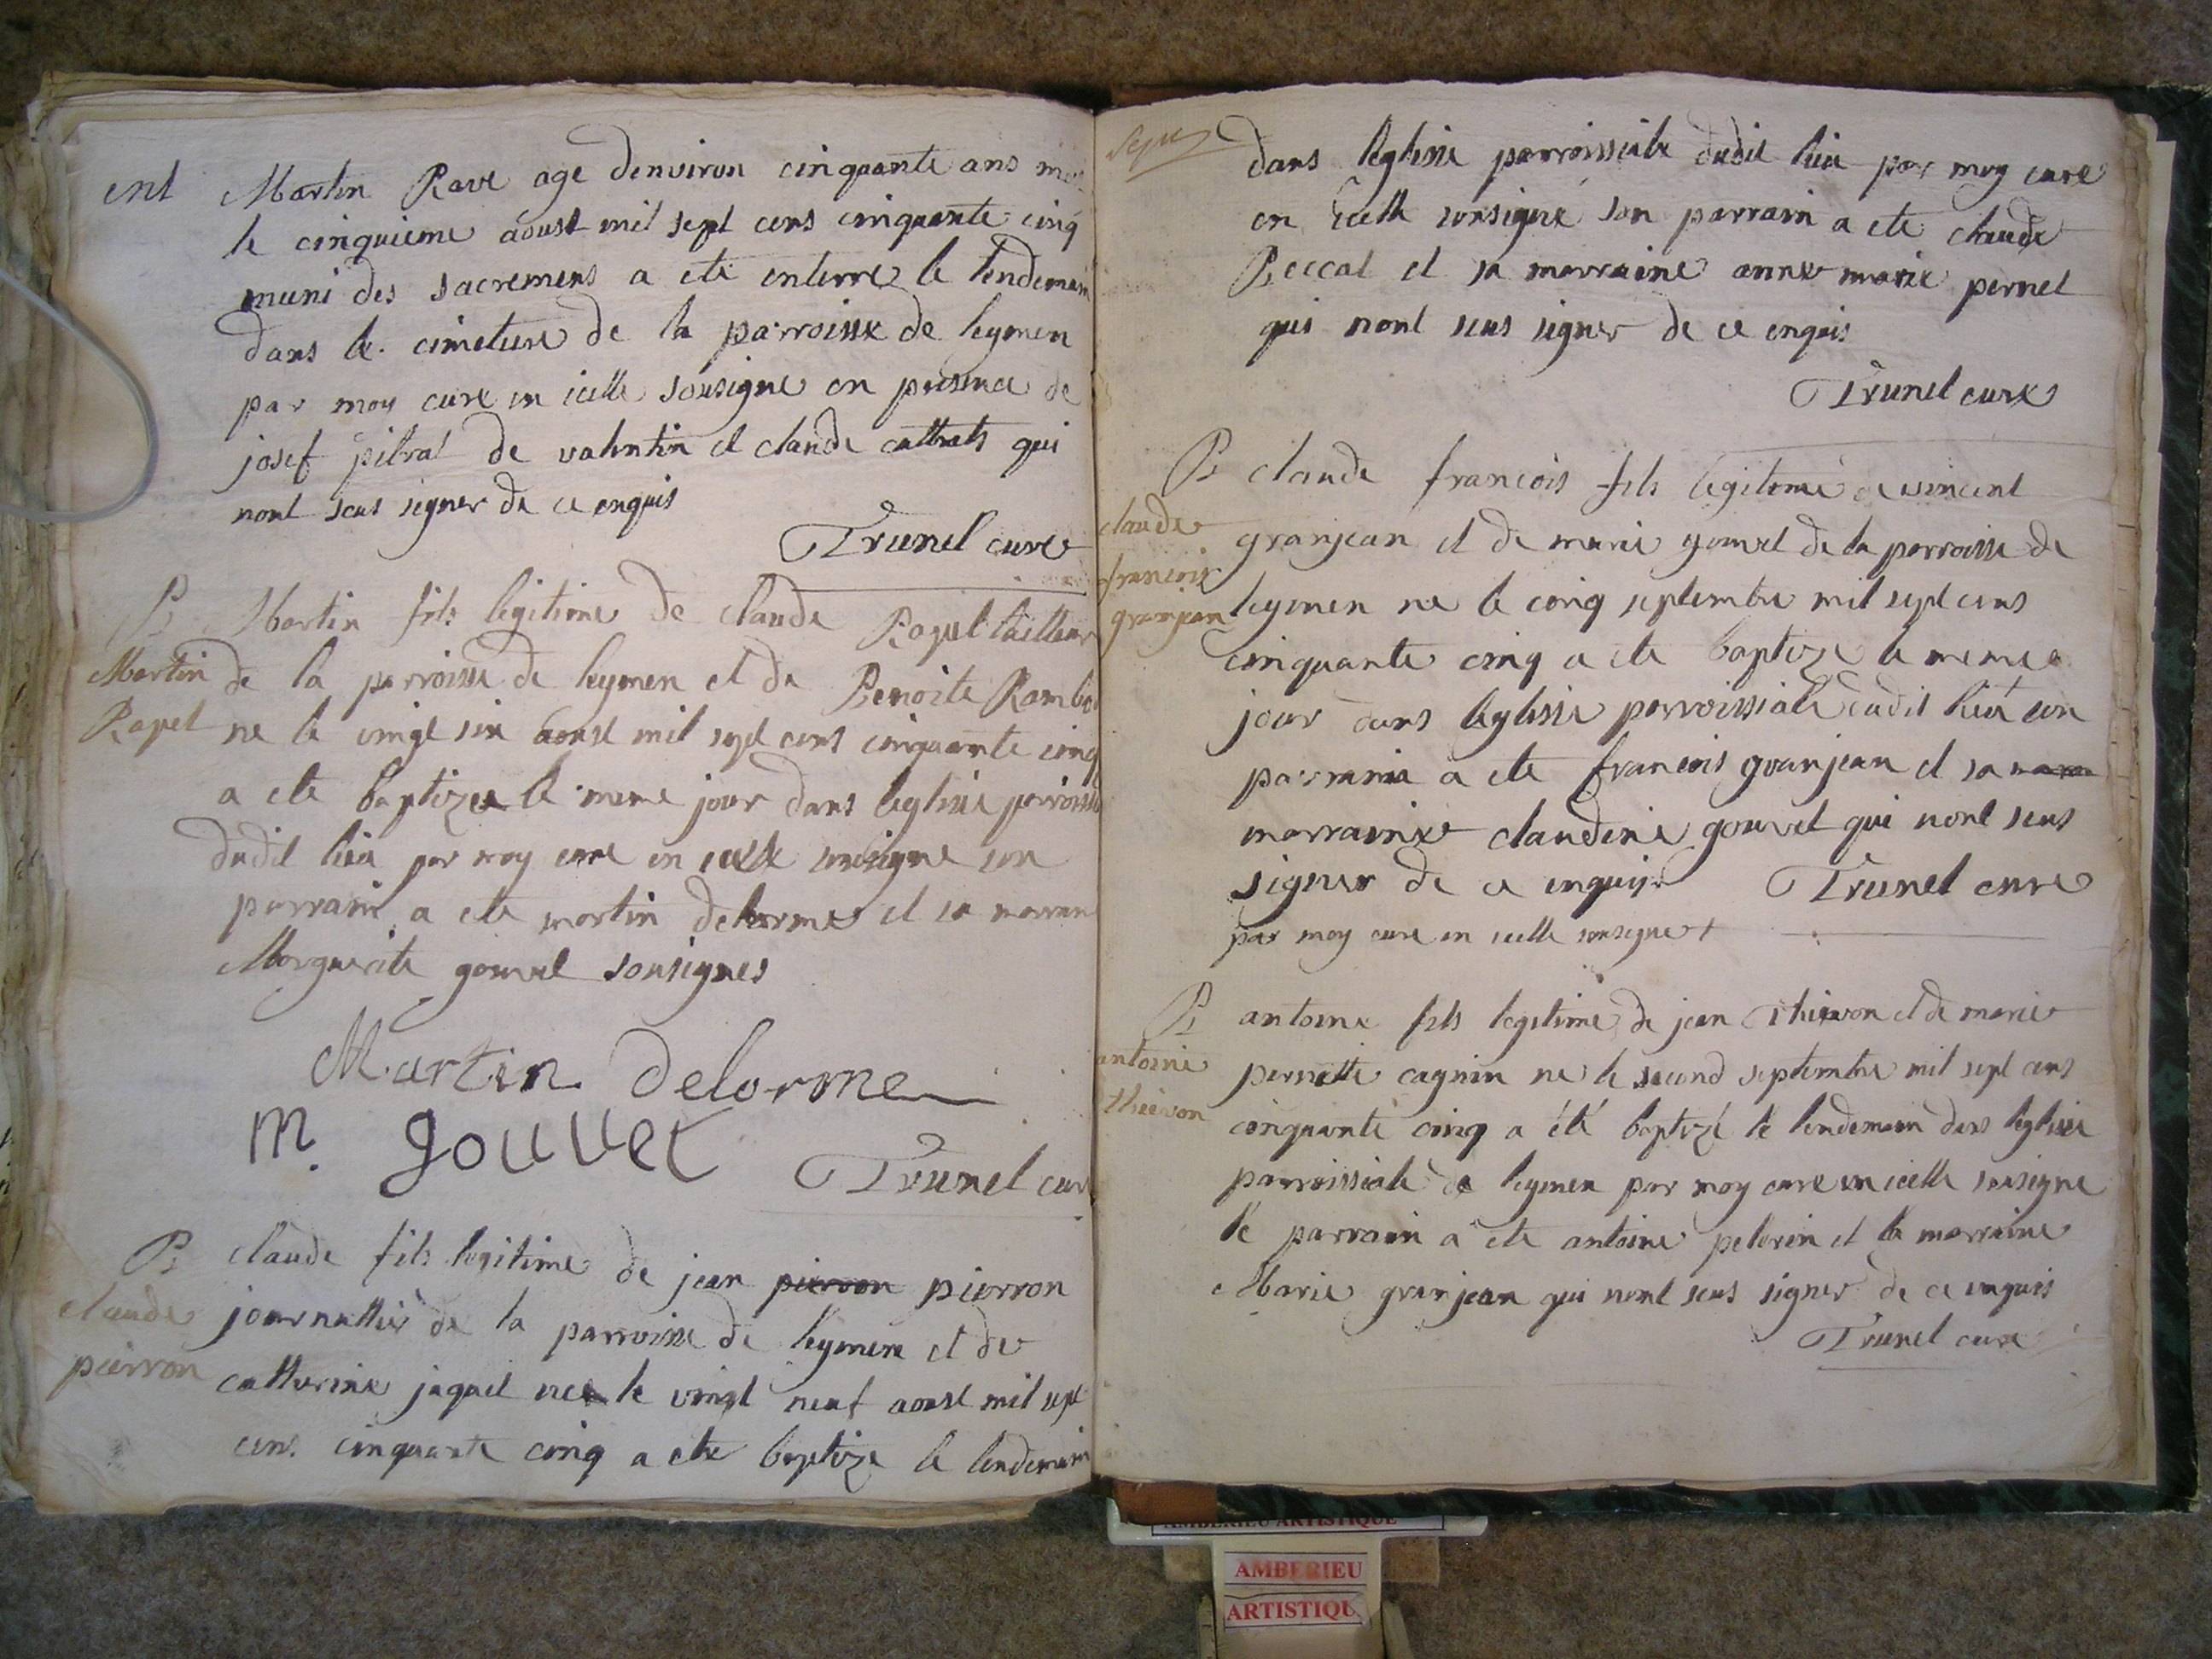 ent
Martin Rave age denviron cinquante ans
le cinquieme aoust mil sept cens cinquante cinq
muni des sacremens a ete enterre le lendemain
dans le cimetiere de la parroisse de leymen
par moy cure en icelle sousigne en presence de
josef pitrat de valentin et claude cattrets qui
nont sceus signer de ce enquis
Trunel cure
B Martin fils legitime de claude Rapet tailleur
Martin
Rapet
de la parroisse de leymen et de Benoite
ne le vingt six aoust mil sept cens cinquante cinq
a ete baptize le meme jour dans leglisse parroissi
dudit lieu par moy cure en icelle sousigne son
parrain a ete martin delorme et sa marrain
Marguerite gouvet sousignes
Martin delorme
m. gouvet
Trunel cur
B claude fils legitime de jean pierron pierron
claude
pierron
journallier de la parroisse de leymen et de
catterine jaquet ne le vingt neuf aoust mil sept
cens cinquante cinq a ete baptize le lendemain
dans leglisse parroissiale dudit lieu par moy cure
en icelle sousigné son parrain a ete claude
Beccat et sa marraine anne marie pernet
qui nont sceus signer de ce enquis
Trunel cure
B claude francois fils legitime de vincent
claude
francois
granjean
granjean et de marie gouvet de la parroisse de
leymen ne le cinq septembre mil sept cens
cinquante cinq a ete baptize le meme
jour dans leglisse parroissiale dudit lieu son
parrain a ete francois granjean et sa
marraine claudine gouvet qui nont sceus
signer de ce enquis Trunel cure
par moy cure en icelle sousigne +
B antoine fils legitime de jean thievon et de marie
antoine
thievon
pernette cagnin ne le second septembre mil sept cens
cinquante cinq a été baptizé le lendemain dans leglisse
parroissiale de leymen par moy cure en icelle sousigne
le parrain a ete antoine pelorin et la marraine
Marie granjean qui nont sceus signer de ce enquis
Trunel cure
AMBERIEU ARTISTIQUE
AMBERIEU
ARTISTIQU